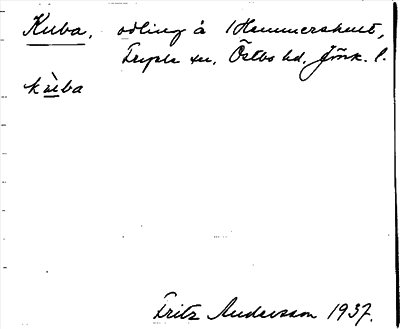 Kuba, odling å Hammershult,
sn, Östbo hd, Jönk. l.
kùba
Fritz Andersson 1937.